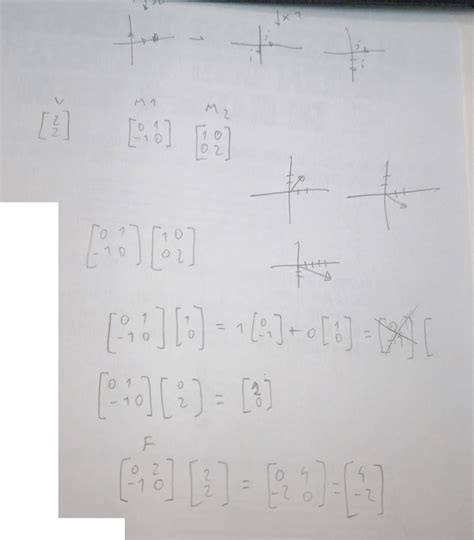 v M1 M2
[2 2] [0 1 -1 0] [1 0 0 2]
[0 1 -1 0] [1 0 0 2]
[0 1 -1 0] [1 0] = 1 [0 -1] + 0 [1 0] = [
[0 1 -1 0] [0 2] = [2 0]
F
[0 2 -1 0] [2 2] = [0 4 -2 0] = [4 -2]